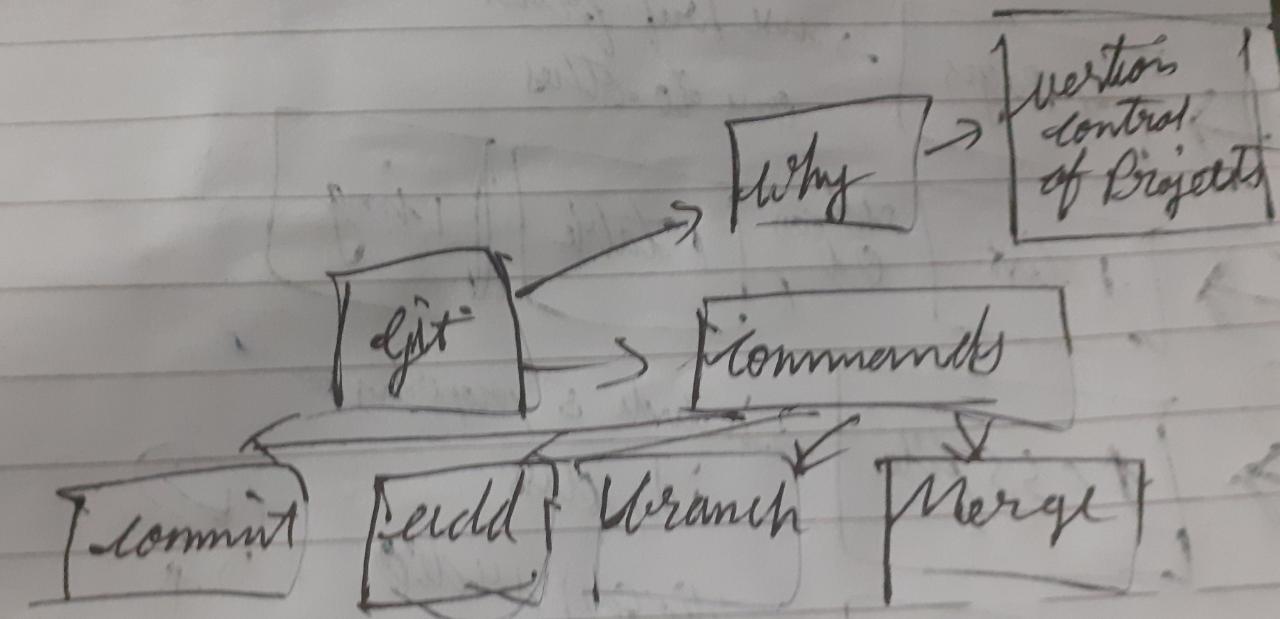 vertion
control
of Projects
Why
Git
commands
commit
add
branch
Merge